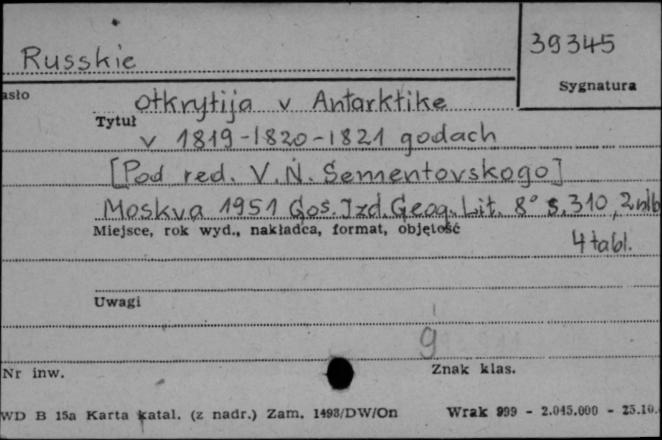 Russkie
39345
Sygnatura
asło
otkrytija v Antarktike
Tytuł
v 1819-1820-1821 godach
[Pod red. V.N. Sementovskogo]
Moskva 1951 Gos. Izd. Geog. Lit. 8° s. 310, 2 nlb
Miejsce, rok wyd., nakładca, format, objętość
4 tabl.
Uwagi
9
Nr inw.
Znak klas.
WD B 15a Karta katal. (z nadr.) Zam. 1498/DW/On
Wrak 999 - 2.045.000 - 25.10.